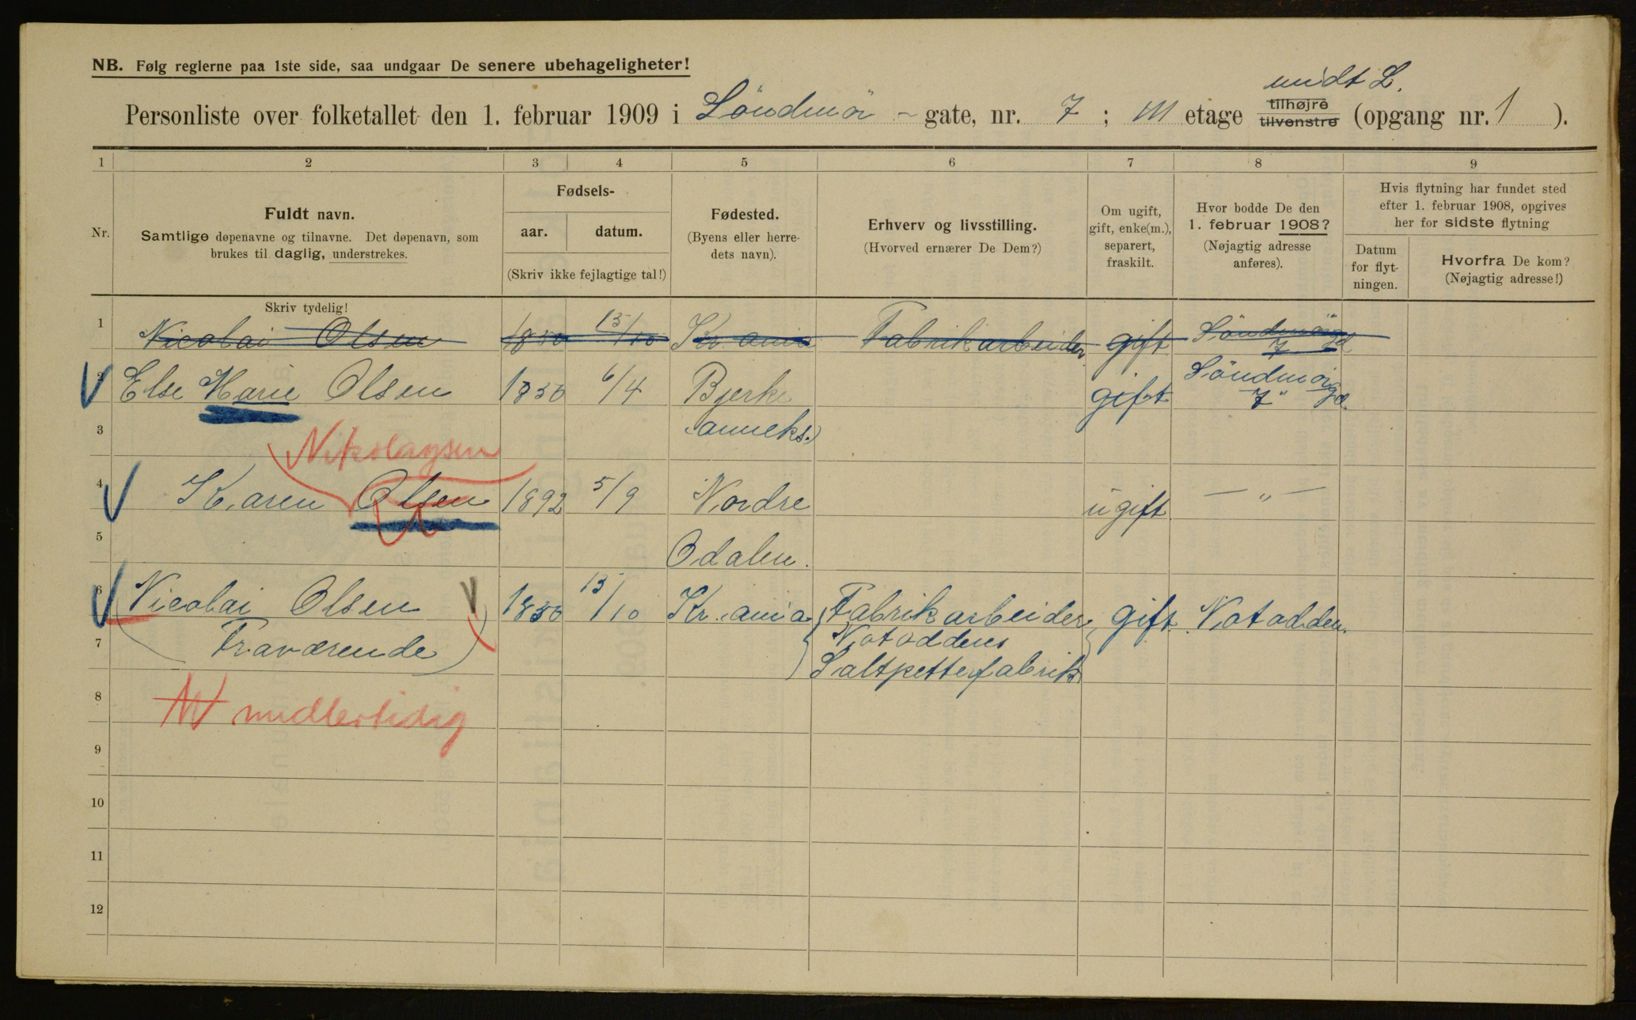 NB. Følg reglerne paa 1ste side, saa undgaar De senere ubehageligheter!
midt L.
Personliste over folketallet den 1. februar 1909 i Söndmör - gate, nr. 7 ; III etage tilhøjre tilvenstre (opgang nr. 1 ).
1 2 3 4 5 6 7 8 9
Nr.
Fuldt navn.
Samtlige døpenavne og tilnavne. Det døpenavn, som
brukes til daglig, understrekes.
Skriv tydelig!
Fødsels-
aar. datum.
(Skriv ikke fejlagtige tal!)
Fødested.
(Byens eller herre-
dets navn).
Erhverv og livsstilling.
(Hvorved ernærer De Dem?)
Om ugift,
gift, enke(m.),
separert,
fraskilt.
Hvor bodde De den
1. februar 1908?
(Nøjagtig adresse
anføres).
Hvis flytning har fundet sted
efter 1. februar 1908, opgives
her for sidste flytning
Datum
for flyt-
ningen.
Hvorfra De kom?
(Nøjagtig adresse!)
1 Nicolai Olsen 1850 15/10 Kr.ania Fabrikarbeider gift Söndmörgd 7
2 Else Marie Olsen 1850 6/4 Bjerke gift Söndmörgd. 7
3 (anneks.)
Nikolaysen
4 Karen Olsen 1892 5/9 Nordre ugift — „ —
5 Odalen.
6 Nicolai Olsen 1850 15/10 Kr.ania. Fabrikarbeider gift Notodden.
7 (Fraværende) Notoddens
Saltpetterfabrik
8 midlertidig
9
10
11
12